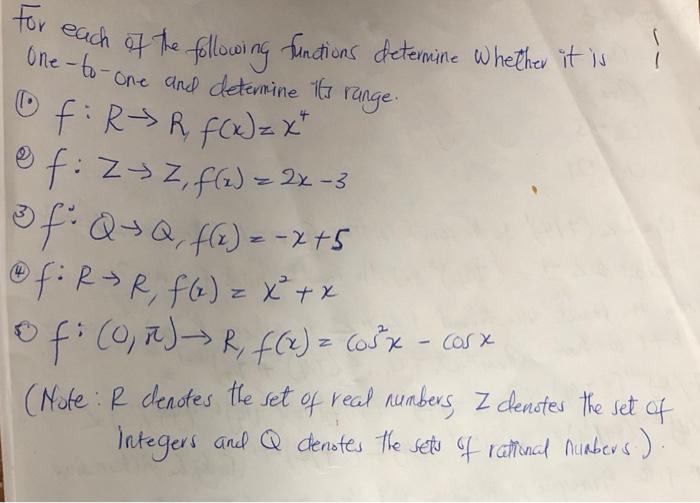 For each of the following functions determine whether it is
one-to-one and determine its range.
① f: R → R, f(x) = x⁴
② f: Z → Z, f(x) = 2x - 3
③ f: Q → Q, f(x) = -x + 5
④ f: R → R, f(x) = x² + x
⑤ f: (0, π) → R, f(x) = cos²x - cos x
(Note: R denotes the set of real numbers, Z denotes the set of
integers and Q denotes the sets of rational numbers.).